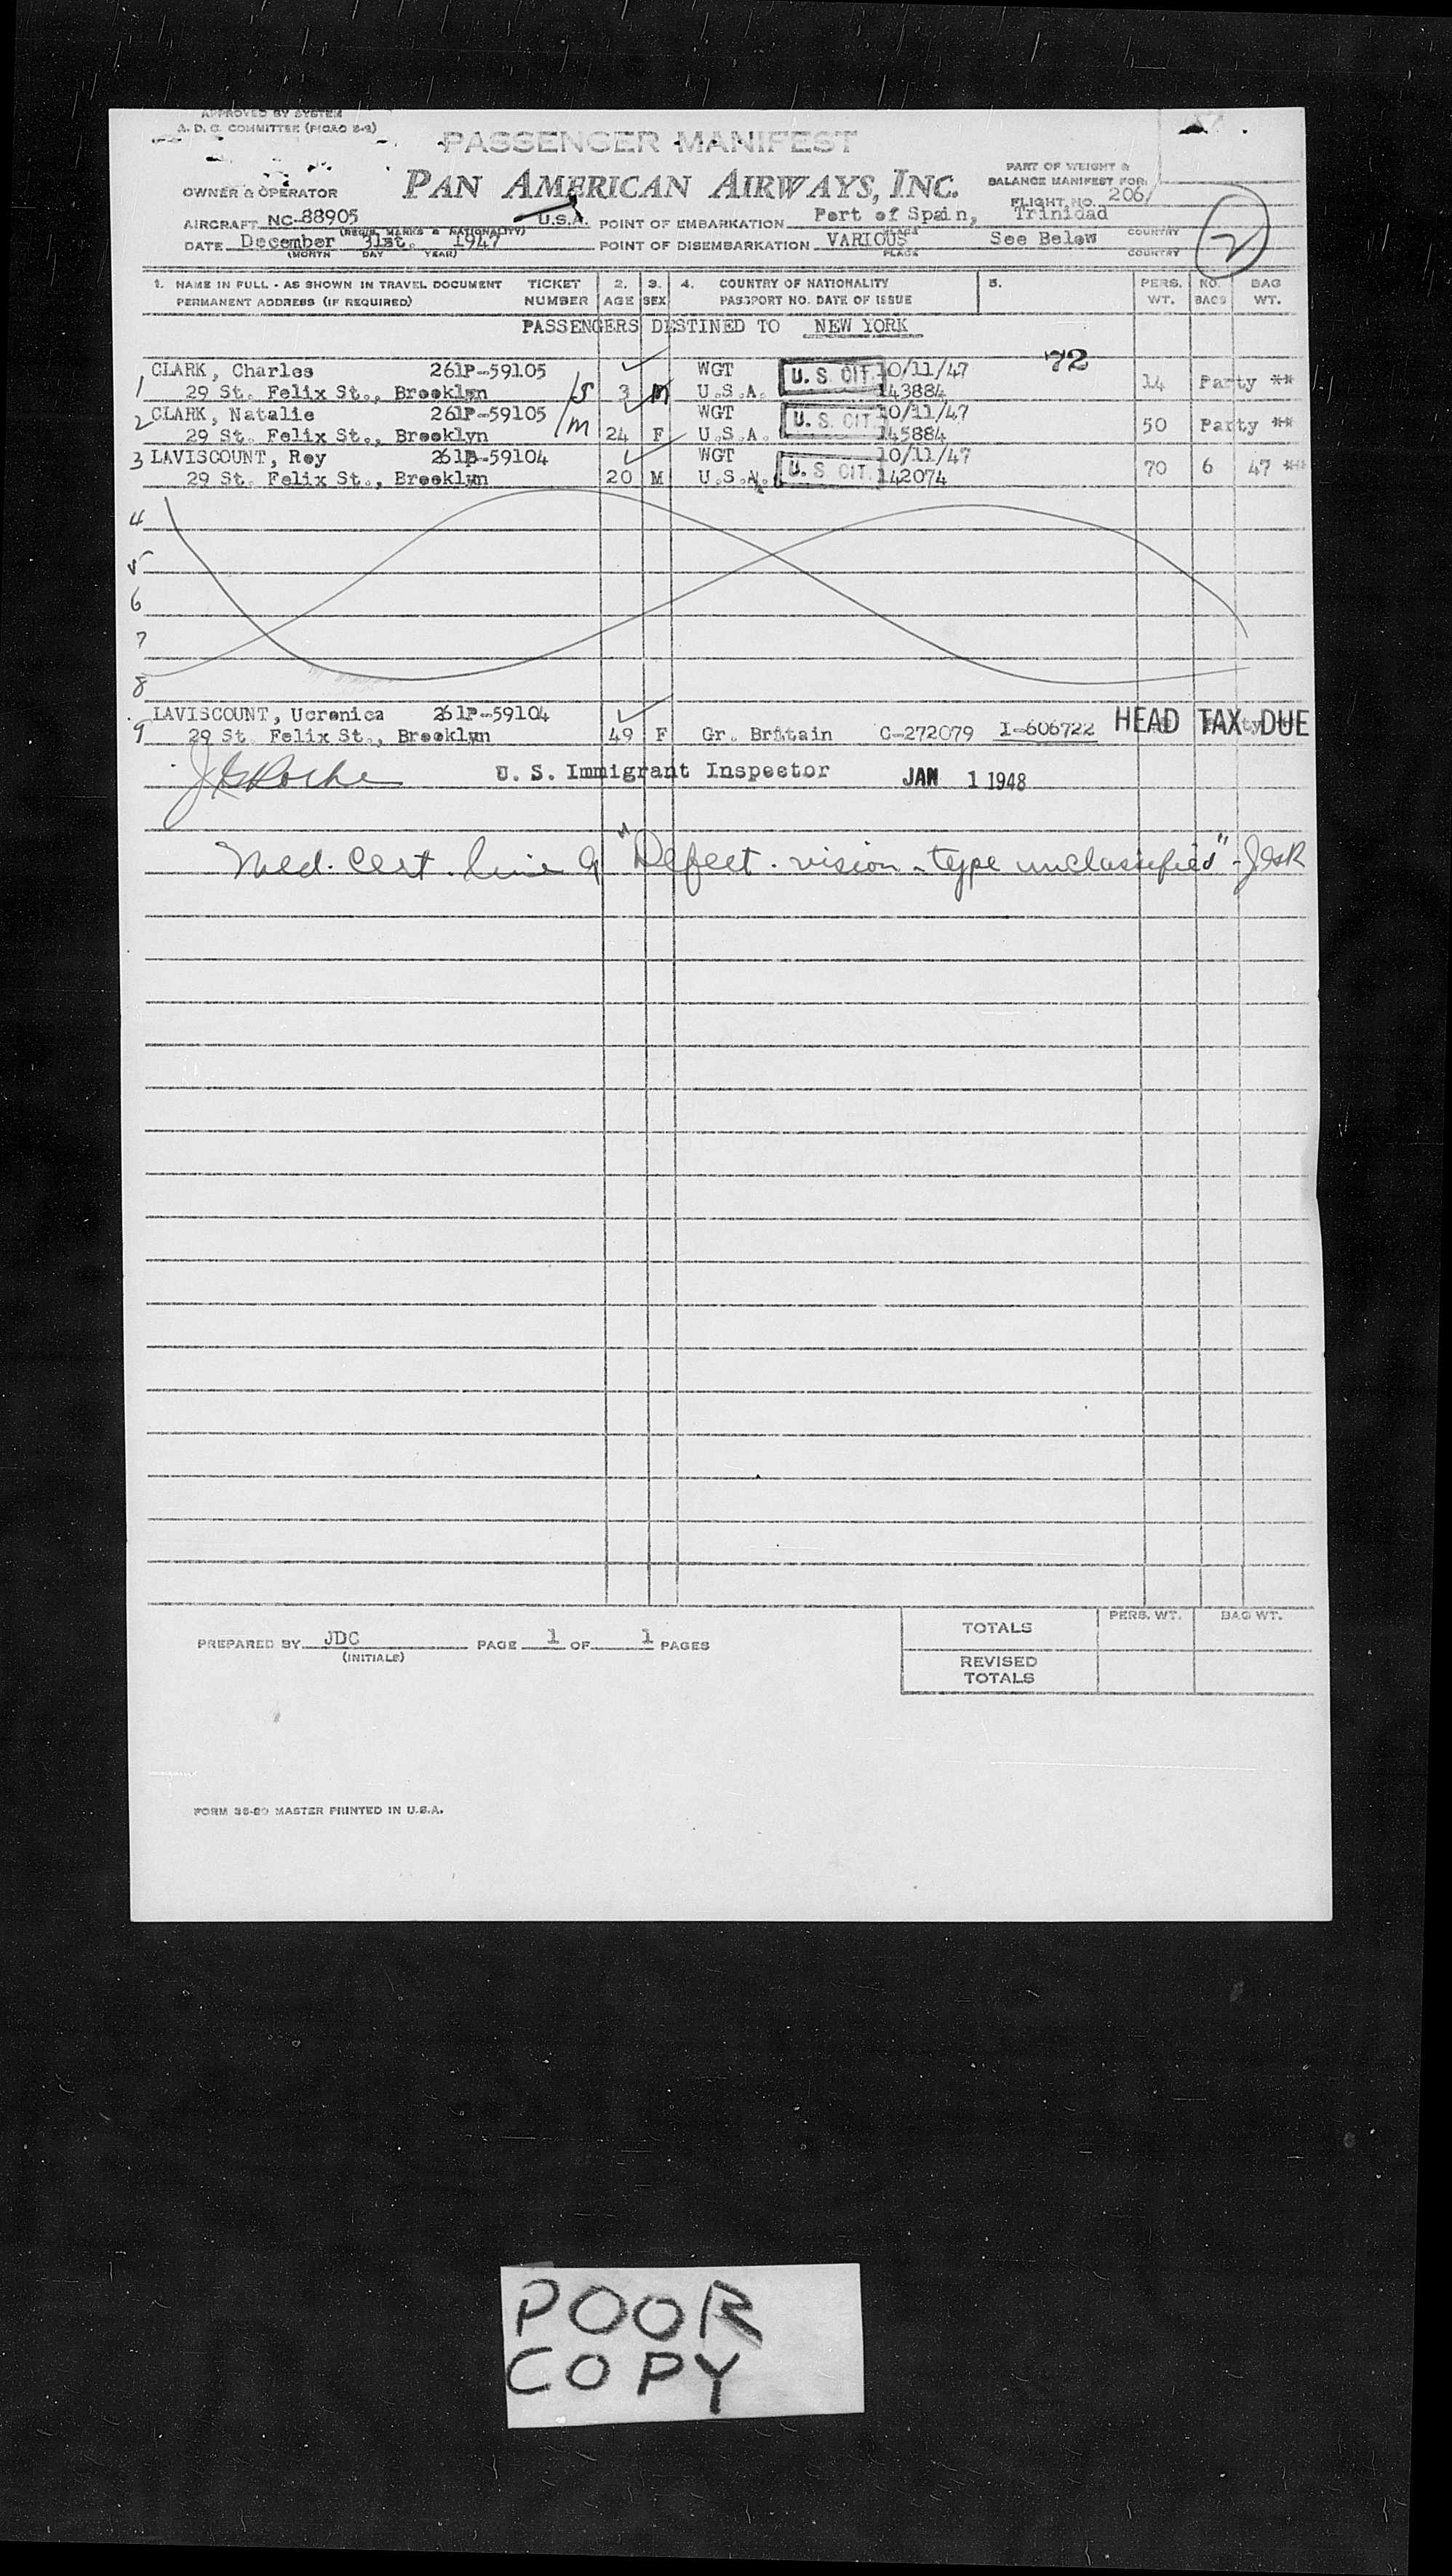 APPROVED BY SYSTEM
A. D. C. COMMITTEE (PICAO S-2)
PASSENGER MANIFEST
PART OF WEIGHT &
BALANCE MANIFEST FOR:
OWNER & OPERATOR PAN AMERICAN AIRWAYS, INC.
FLIGHT NO. 206/
AIRCRAFT NC-88905 U.S.A. POINT OF EMBARKATION Port of Spain, Trinidad
(REGIS. MARKS & NATIONALITY) PLACE COUNTRY
2
DATE December 31st. 1947 POINT OF DISEMBARKATION VARIOUS See Below
(MONTH DAY YEAR) PLACE COUNTRY
1. NAME IN FULL - AS SHOWN IN TRAVEL DOCUMENT TICKET 2. 3. 4. COUNTRY OF NATIONALITY 5. PERS. NO. BAG
PERMANENT ADDRESS (IF REQUIRED) NUMBER AGE SEX PASSPORT NO. DATE OF ISSUE WT. BAGS WT.
PASSENGERS DESTINED TO NEW YORK
72
CLARK, Charles 261P-59105 WGT U. S. CIT. 10/11/47
1 29 St. Felix St., Brooklyn /S 3 M U.S.A. 143884 14 Party **
2 CLARK, Natalie 261P-59105 WGT U. S. CIT. 10/11/47
29 St. Felix St., Brooklyn /M 24 F U.S.A. 145884 50 Party **
3 LAVISCOUNT, Roy 261P-59104 WGT U. S. CIT. 10/11/47
29 St. Felix St., Brooklyn 20 M U.S.A. 142074 70 6 47 **
4
5
6
7
8
LAVISCOUNT, Ucronica 261P-59104
9 29 St. Felix St., Brooklyn 49 F Gr. Britain C-272079 I-606722 HEAD TAX DUE
J G Roche U. S. Immigrant Inspector JAN 1 1948
Med. Cert. line 9 "Defect. vision - type unclassified" - JGR
PREPARED BY JDC PAGE 1 OF 1 PAGES
(INITIALS)
PERS. WT. BAG WT.
TOTALS
REVISED
TOTALS
FORM 36-20 MASTER PRINTED IN U.S.A.
POOR
COPY